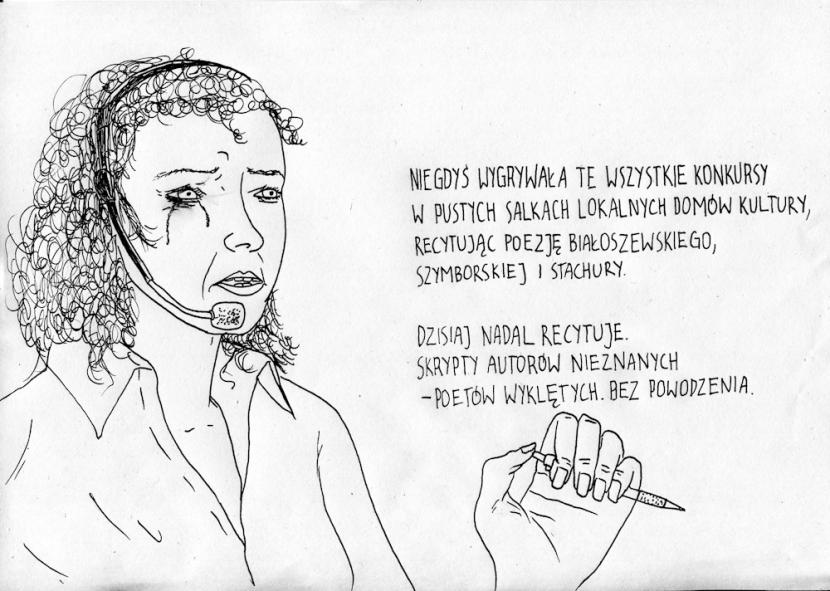 NIEGDYŚ WYGRYWAŁA TE WSZYSTKIE KONKURSY
W PUSTYCH SALKACH LOKALNYCH DOMÓW KULTURY,
RECYTUJĄC POEZJĘ BIAŁOSZEWSKIEGO,
SZYMBORSKIEJ I STACHURY.
DZISIAJ NADAL RECYTUJE.
SKRYPTY AUTORÓW NIEZNANYCH
–POETÓW WYKLĘTYCH. BEZ POWODZENIA.